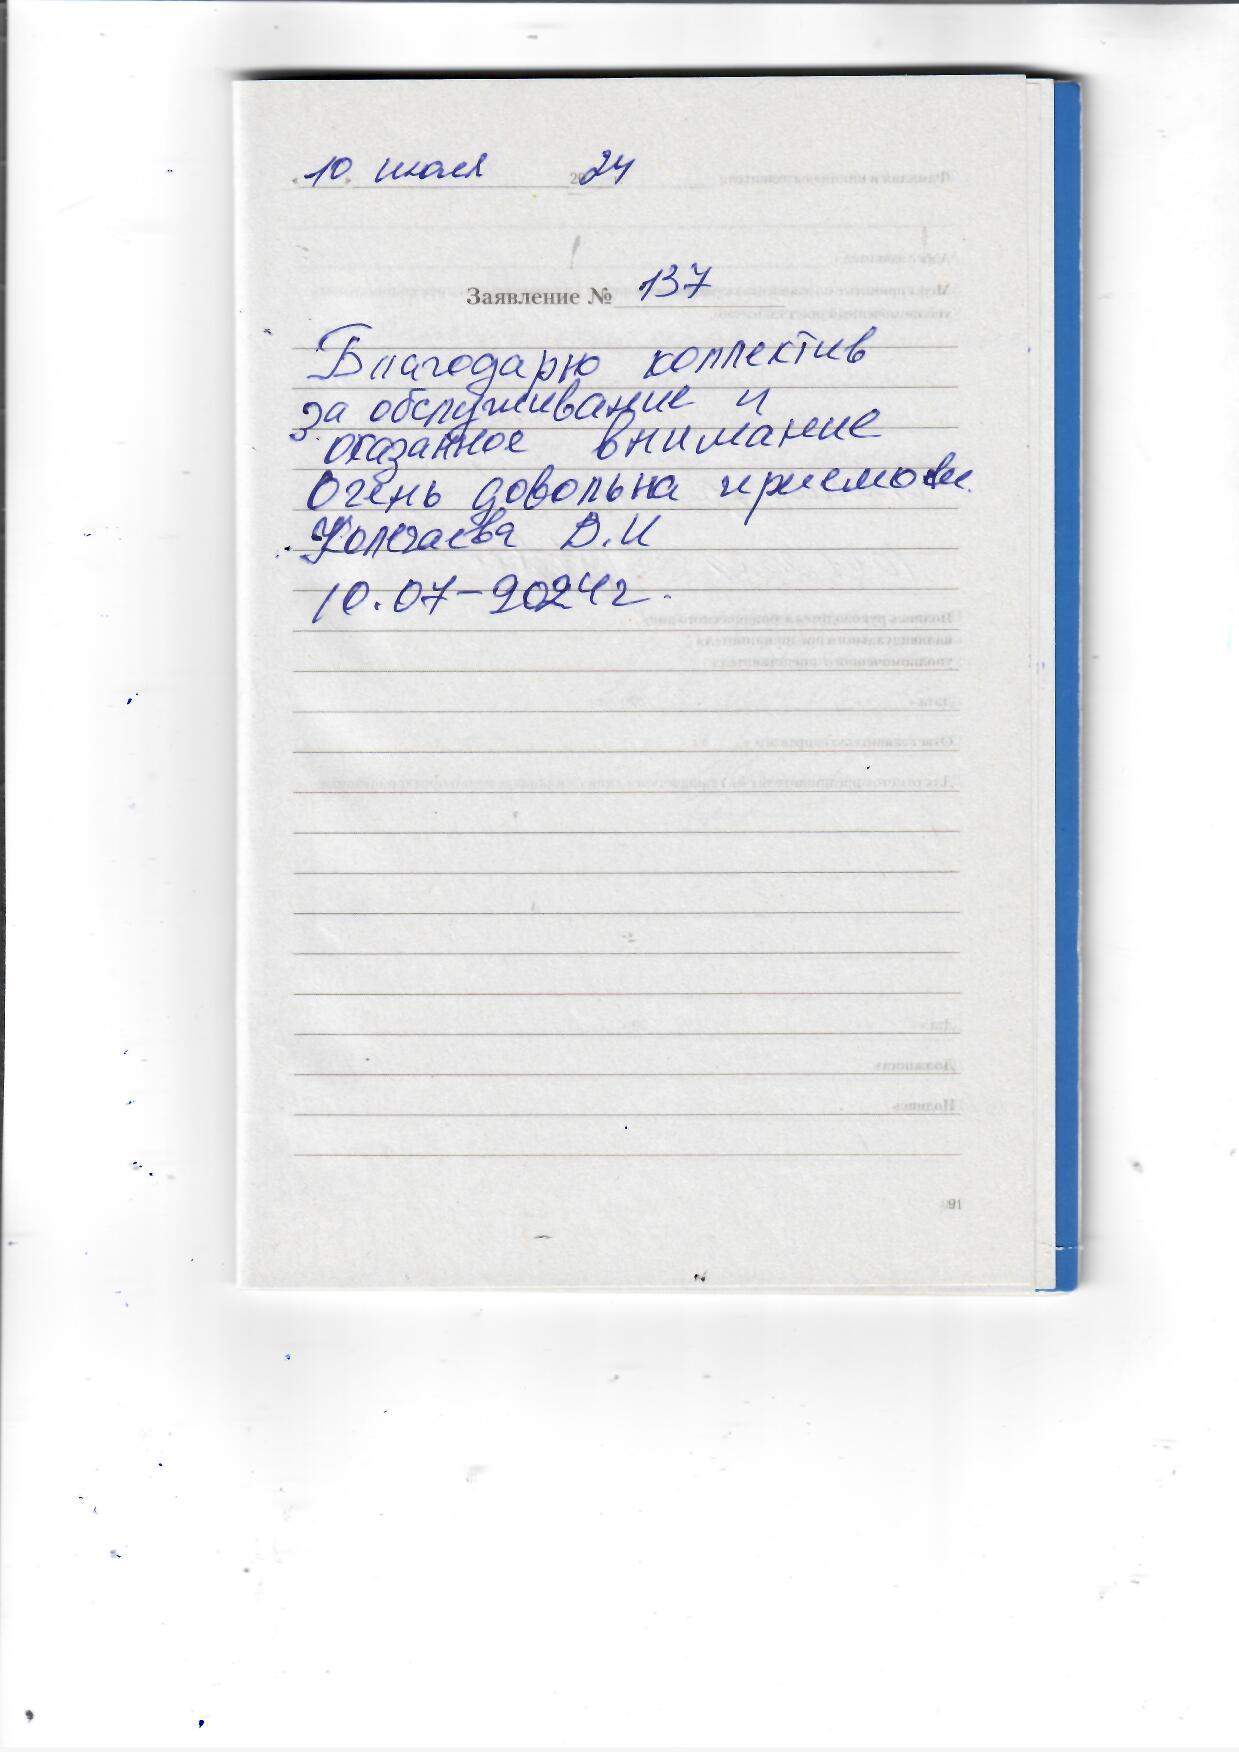 10 июля 2024
Заявление № 137
Благодарю коллектив
за обслуживание и
оказанное внимание
Очень довольна приемом.
В.И
10.07-2024г.
91